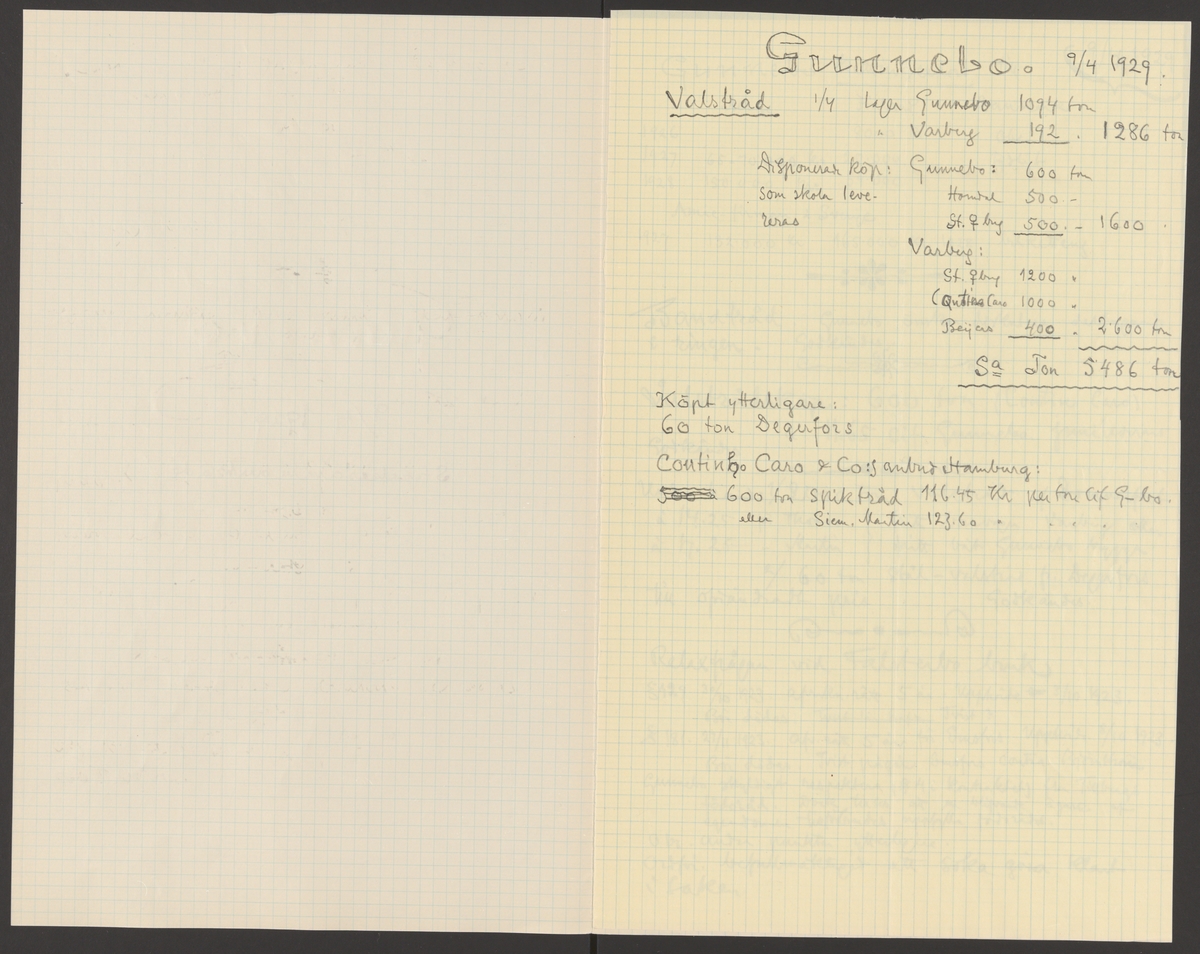 Gunnebo. 9/4 1929.
Valstråd 1/4 Lager Gunnebo 1094 ton
" Varberg 192 . 1286 ton
Disponerar köp: Gunnebo: 600 ton
som skola leve- 500 -
reras St. 500 . - 1600
Varberg:
St. 1200 "
Caro 1000 "
Beijers 400 " 2.600 ton
Sa Ton 5486 ton
Köpt ytterligare:
60 ton Degerfors
Continho Caro & Co:s anbud Hamburg:
600 ton spiktråd 116.45 Kr per ton cif G-bo.
eller Siem. Martin 123.60 " " " "